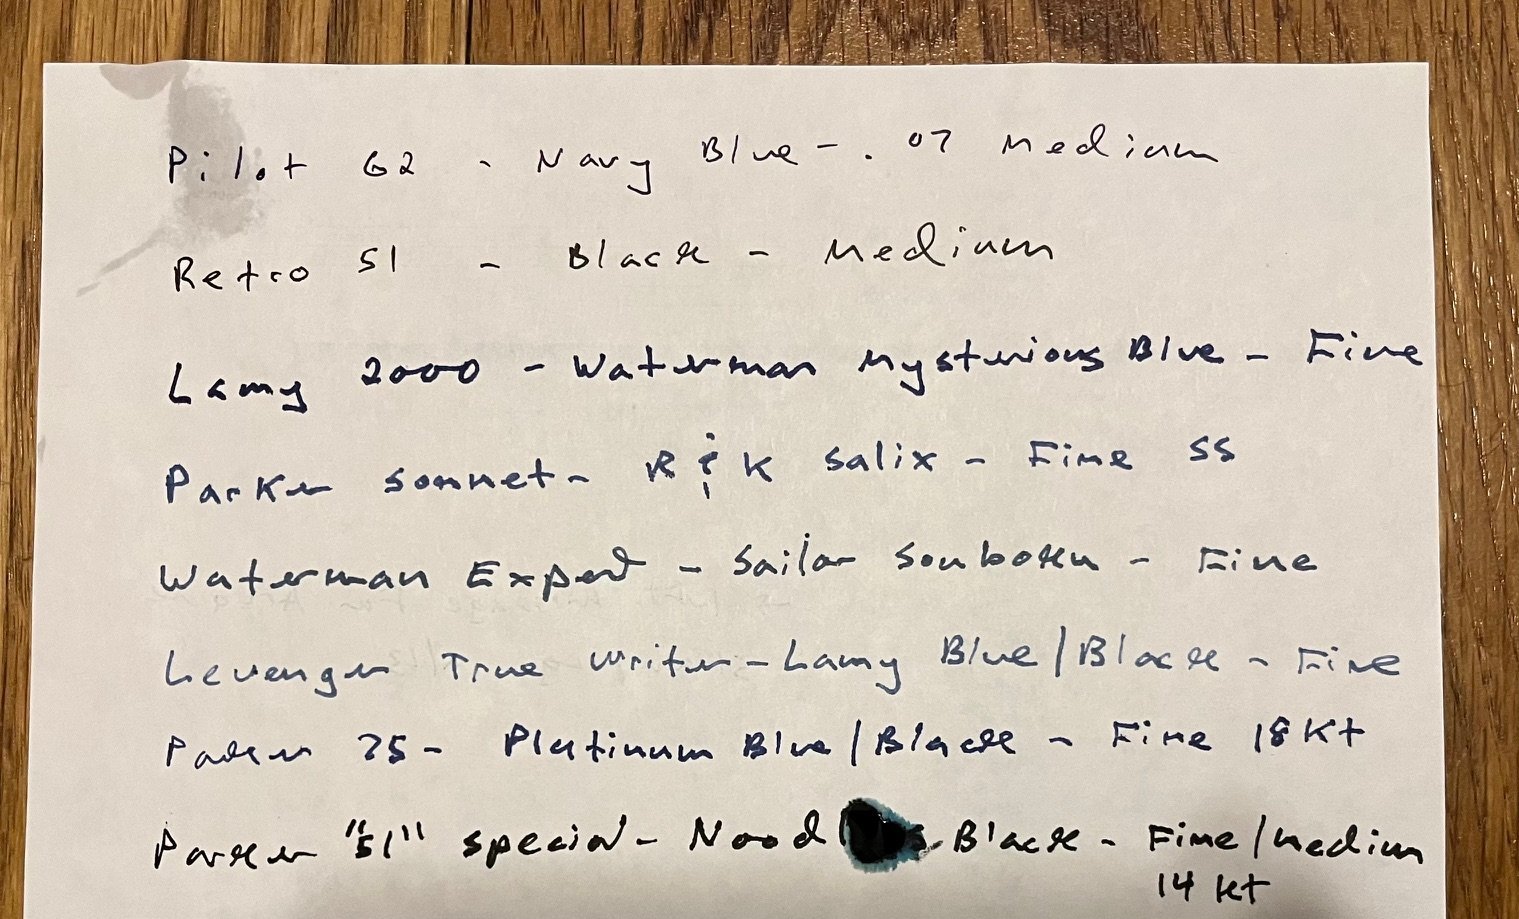 Pilot G2 - Navy Blue - . 07 Medium
Retro 51 - Black - Medium
Lamy 2000 - Waterman Mysterious Blue - Fine
Parker Sonnet - R & K Salix - Fine SS
Waterman Expert - Sailor Souboku - Fine
Levenger True Writer - Lamy Blue/Black - Fine
Parker 75 - Platinum Blue/Black - Fine 18 Kt
Parker "51" Special - Black - Fine/Medium
14 kt